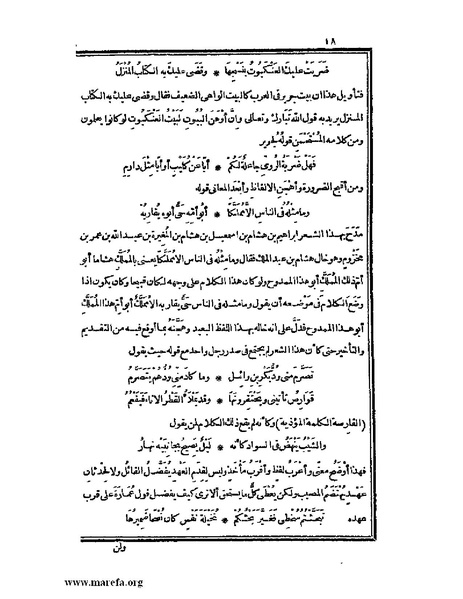 ١٨
ضربت عليك العنكبوت بنسجها * وقضى عليك به الكتاب المنزل
فتأويل هذا أن بيت جرير فى العرب كالبيت الواهى الضعيف فقال وقضى عليك به الكتاب
المنزل يريد به قول الله تبارك وتعالى وإن أوهن البيوت لبيت العنكبوت لو كانوا يعلمون
ومن كلامه المستحسن قوله لجرير
فهل ضربة الرومى جاعلة لكم * أبا عن كليب أو أبا مثل دارم
ومن أقبح الضرورة وأهجن الالفاظ وأبعد المعانى قوله
وما مثله فى الناس الا مملكا * أبو أمه حى أبوه يقاربه
مدح بهذا الشعر ابراهيم بن هشام بن اسمعيل بن هشام بن المغيرة بن عبد الله بن عمر بن
مخزوم وهو خال هشام بن عبد الملك فقال وما مثله فى الناس الا مملكا يعنى بالمملك هشاما أبو
أم ذلك المملك أبو هذا الممدوح ولو كان هذا الكلام على وجهه لكان قبيحا وكان يكون اذا
وضع الكلام فى موضعه أن يقول وما مثله فى الناس حى يقاربه الا مملك أبو أم هذا المملك
أبو هذا الممدوح فدل على انه خاله بهذا اللفظ البعيد وهجنه بما أوقع فيه من التقديم
والتأخير حتى كأن هذا الشعر لم يجتمع فى صدر رجل واحد مع قوله حيث يقول
تصرم منى ود بكر بن وائل * وما كاد منى ودهم يتصرم
قوارص تأتينى ويحتقرونها * وقد يملأ القطر الاناء فيفعم
(القارصة الكلمة المؤذية) وكأنه لم يقع ذلك الكلام لمن يقول
والشيب ينهض فى السواد كأنه * ليل يصيح بجانبيه نهار
فهذا أوضح معنى وأعرب لفظ وأقرب مأخذ وليس لقدم العهد يفضل القائل ولا لحدثان
عهد يهتضم المصيب ولكن يعطى كل ما يستحق ألا ترى كيف يفضل قول عمارة على قرب
عهده تبحثتم سخطى فغير بحثكم * نخيلة نفس كان نصحا ضميرها
ولن
www.marefa.org